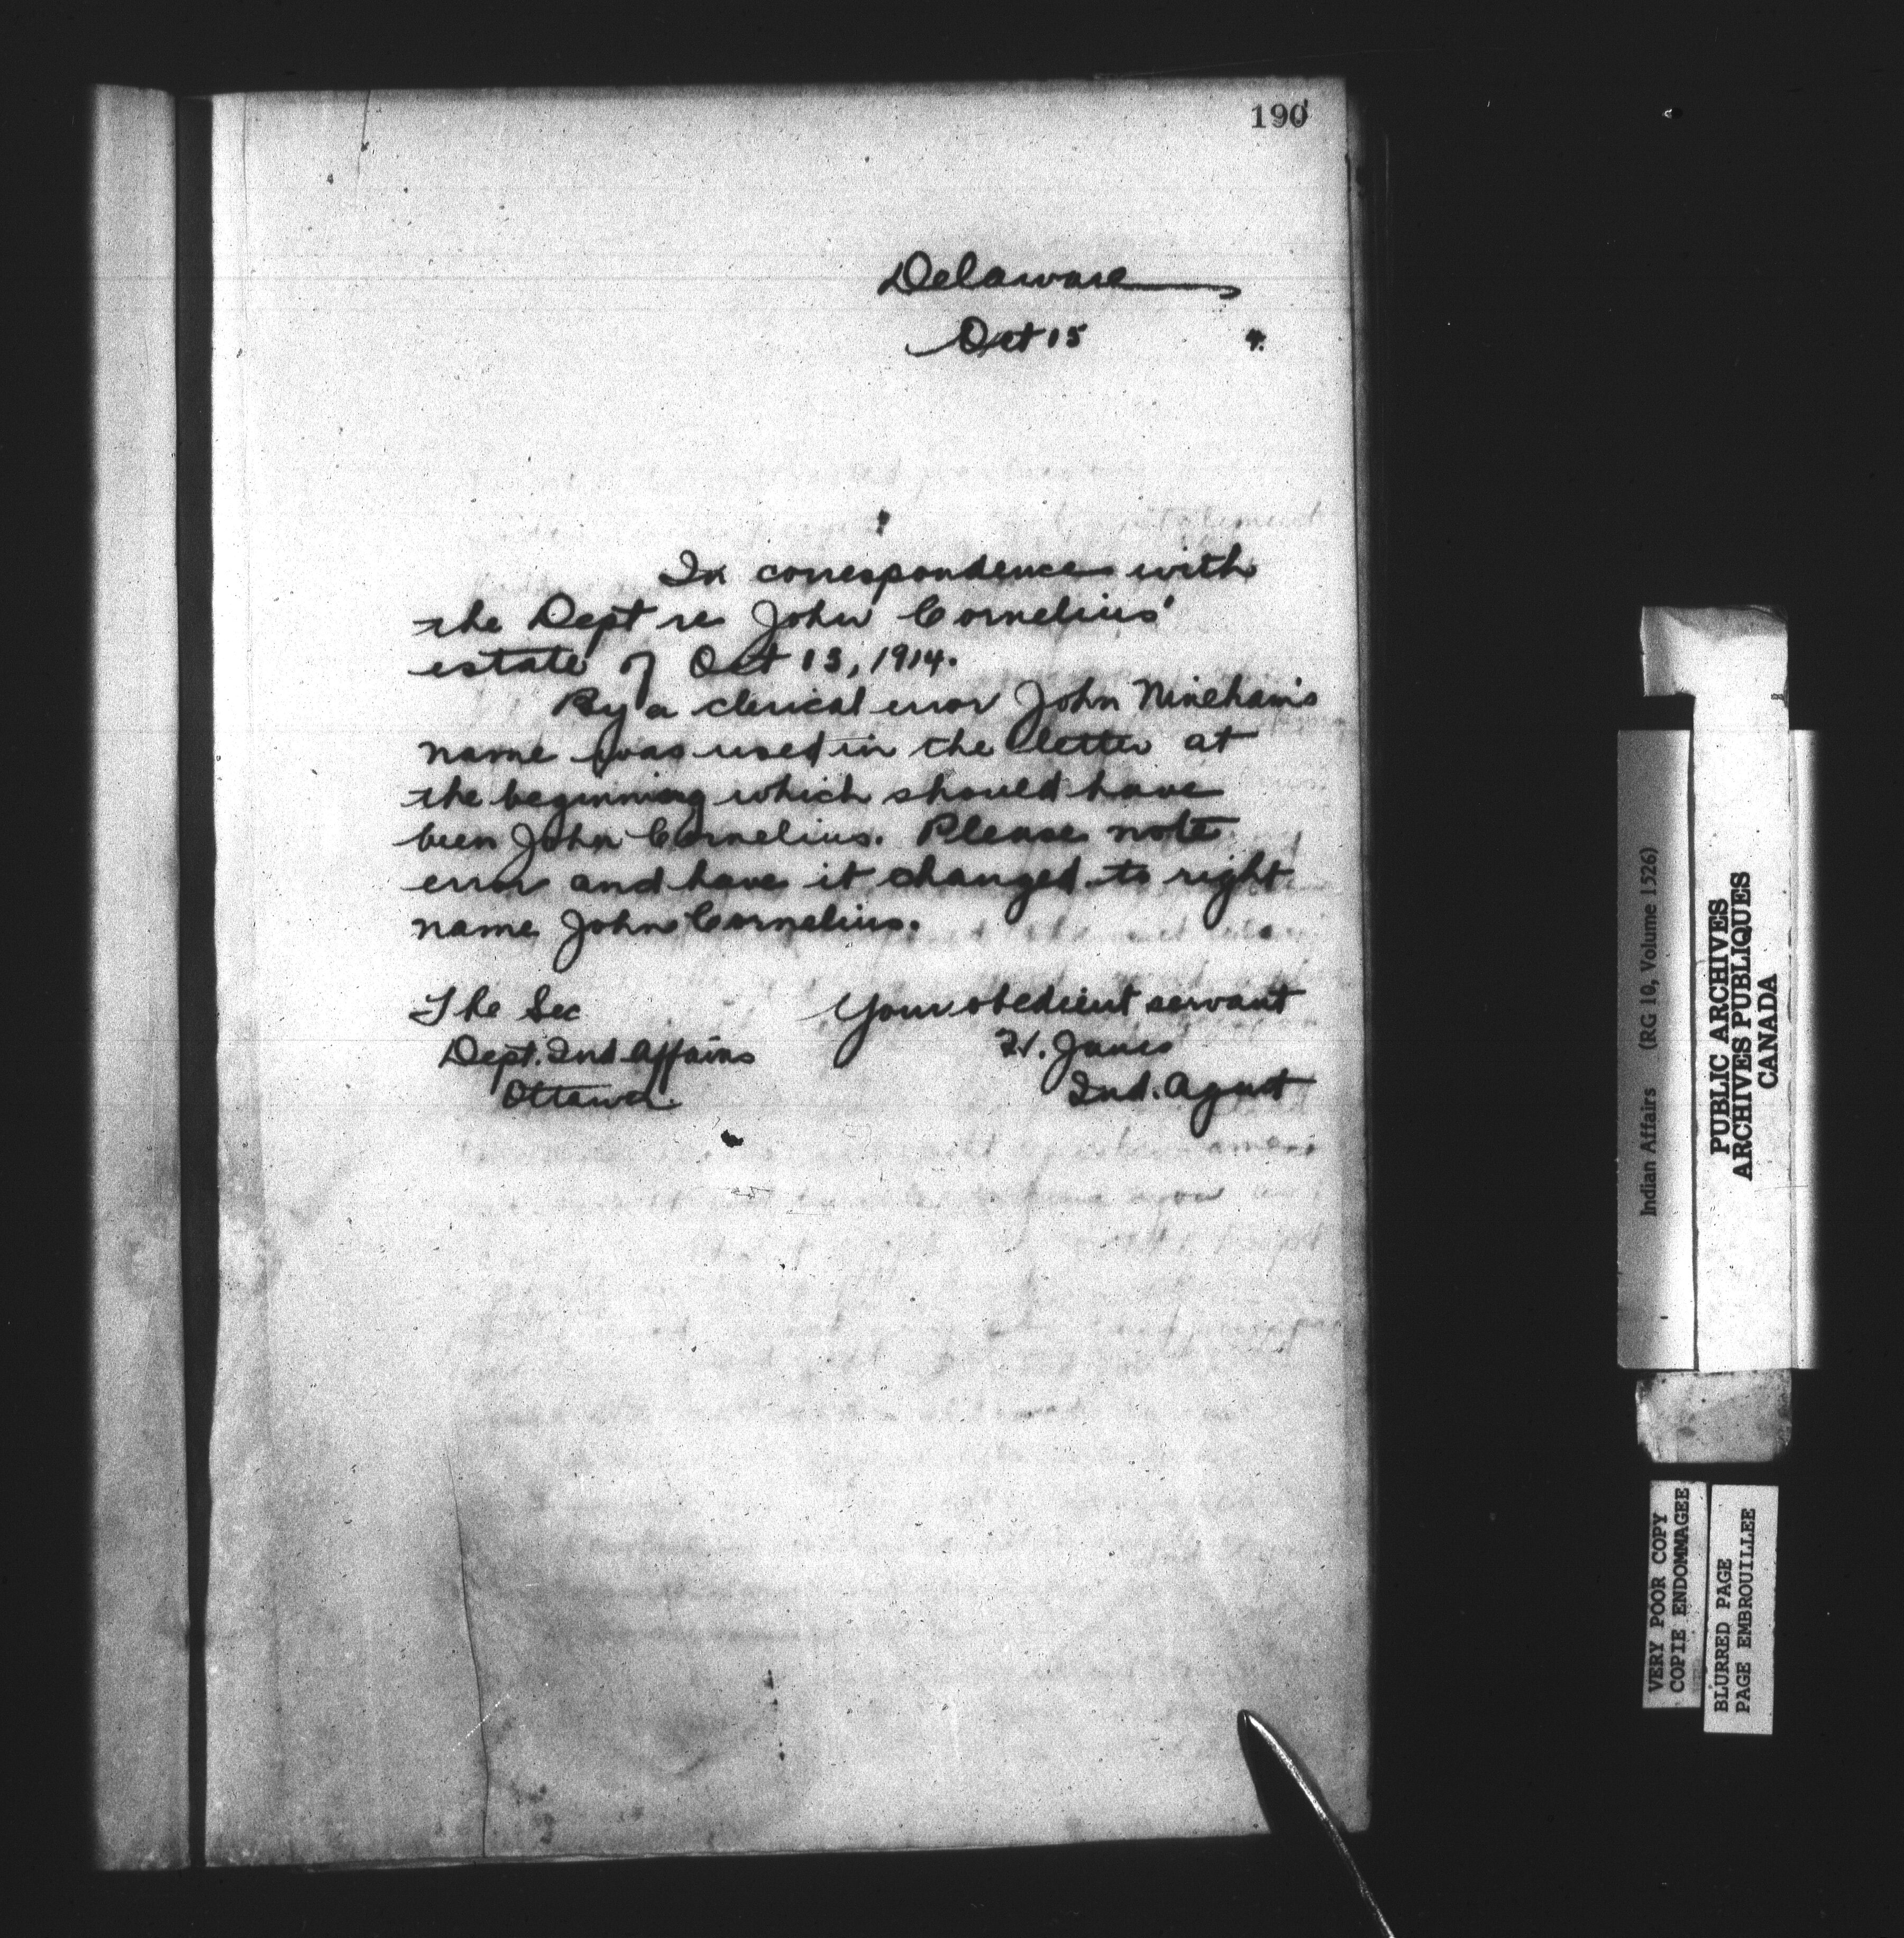 190
Delaware
Oct 15 4.
In correspondence with
the Dept re John Cornelius'
estate of Oct 13, 1914.
By a clerical error John Nineham's
name was used in the letter at
the beginning which should have
been John Cornelius. Please note
error and have it changed to right
name John Cornelius.
The Sec Your obedient servant
Dept. Ind. Affairs
Ottawa Ind. Agent
Indian Affairs (RG 10, Volume 1526)
PUBLIC ARCHIVES
ARCHIVES PUBLIQUES
CANADA
VERY POOR COPY
COPIE ENDOMMAGEE
BLURRED PAGE
PAGE EMBROUILLEE